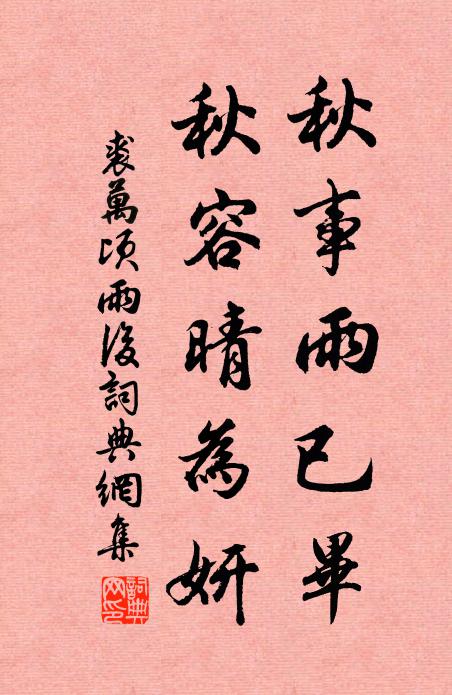 秋事雨已畢
秋容晴為妍
裘萬頃雨後詞典網集
詞典网印